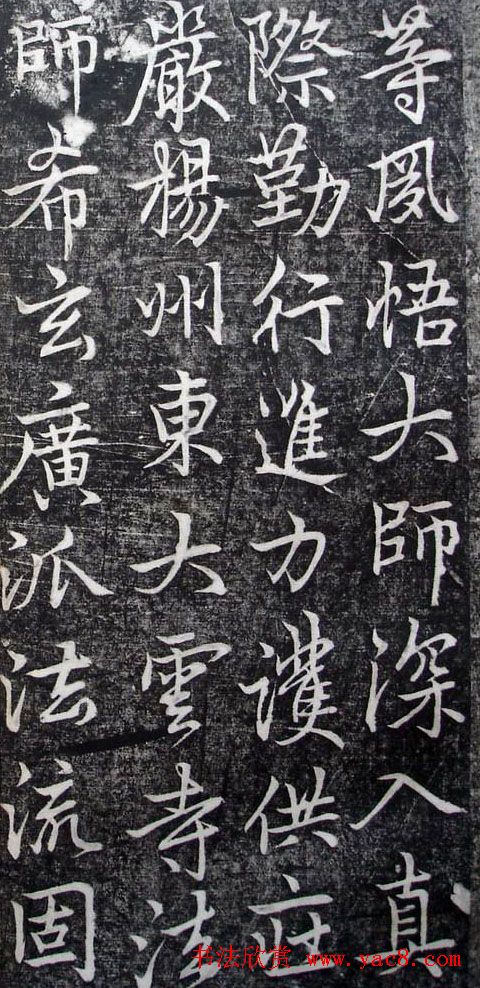 等夙悟大師深入真
際勤行進力護供莊
嚴楊州東大雲寺法
師希玄廣派法流固
书法欣赏 www.yac8.com